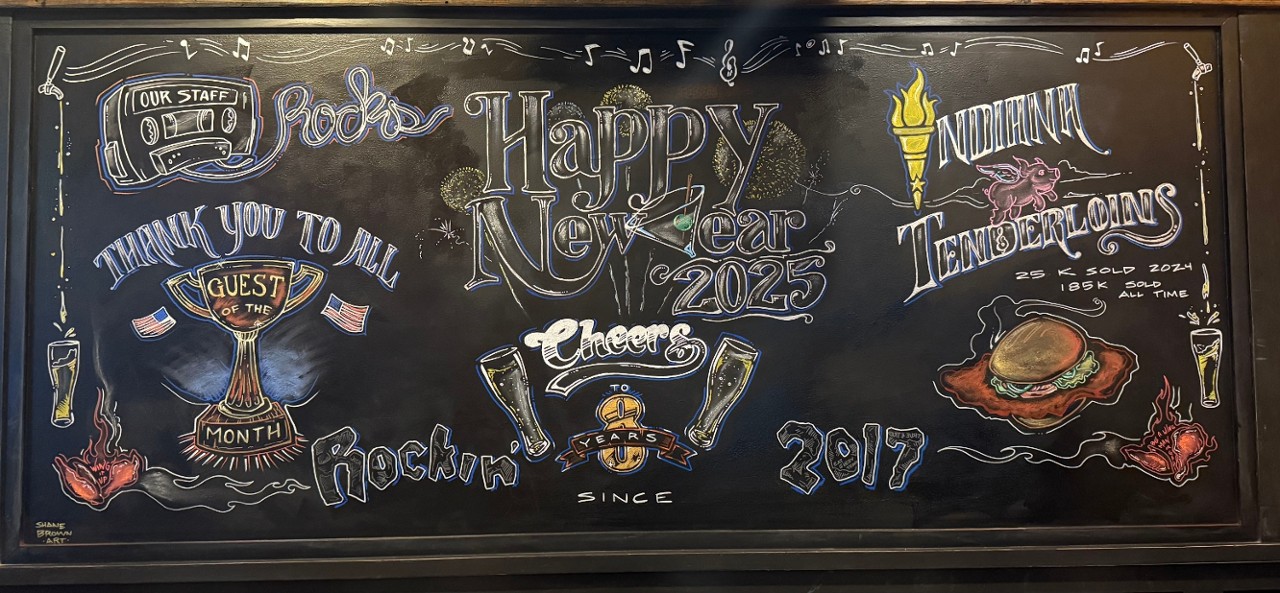 OUR STAFF
Rocks
THANK YOU TO ALL
GUEST
OF THE
MONTH
Happy
New Year
2025
Cheers
TO
8
YEARS
Rockin'
SINCE
2017
INDIANA
TENDERLOINS
25 K SOLD 2024
185K SOLD
ALL TIME
WING
IT
UP
SHANE
BROWN
·ART·